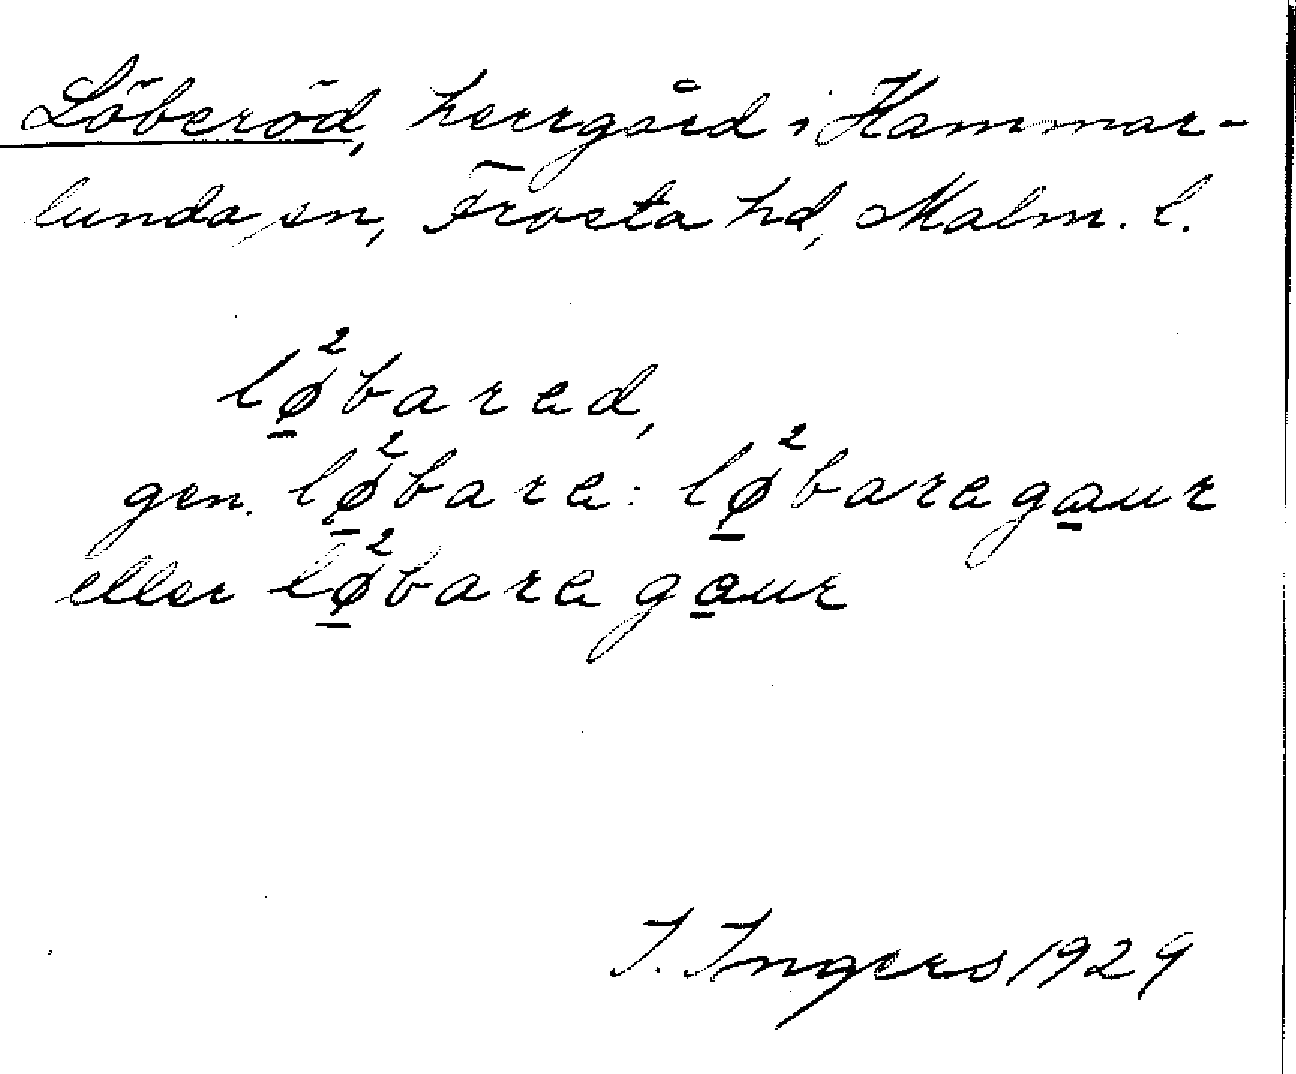 Löberöd, herrgård i Hammar-
lunda sn, Frosta hd, Malm. l.
lø̲²barad,
gen. lø̲²bara: lø̲²baraga̲ur
eller lø̲²bara ga̲ur
I. Ingers 1929